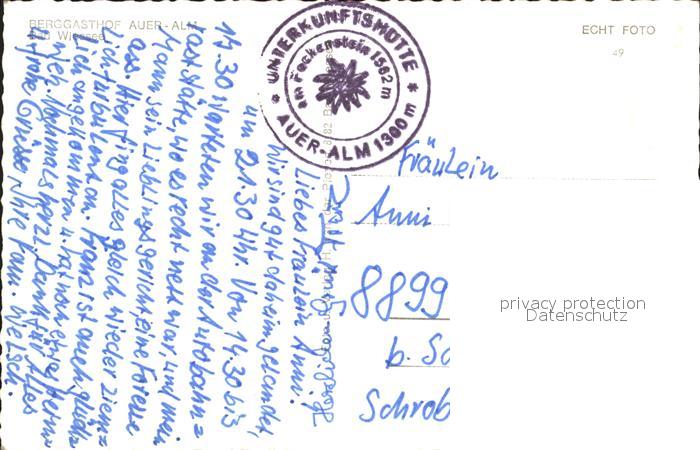 BERGGASTHOF AUER-ALM
Bad Wiessee
ECHT FOTO
49
* UNTERKUNFTSHÜTTE *
am Fockenstein 1562 m
AUER-ALM 1300 m
Liebes Fräulein Anni!
Wir sind gut daheim gelandet,
um 21.30 Uhr. Von 14.30 bis
17.30 warteten wir an der Autobahn=
raststätte, wo es recht nett war, und mein
Mann sein Lieblingsgericht, eine Forelle
ass. Hier fing alles gleich wieder ziem=
lich turbulent an. Franz ist auch glück=
lich angekommen u. hat noch eine Ferm
Nochmals herzl. Dank für Alles
frohe Grüsse Ihre Fam.
Fräulein
Anni
8899
b. Sc
Schrob
privacy protection
Datenschutz